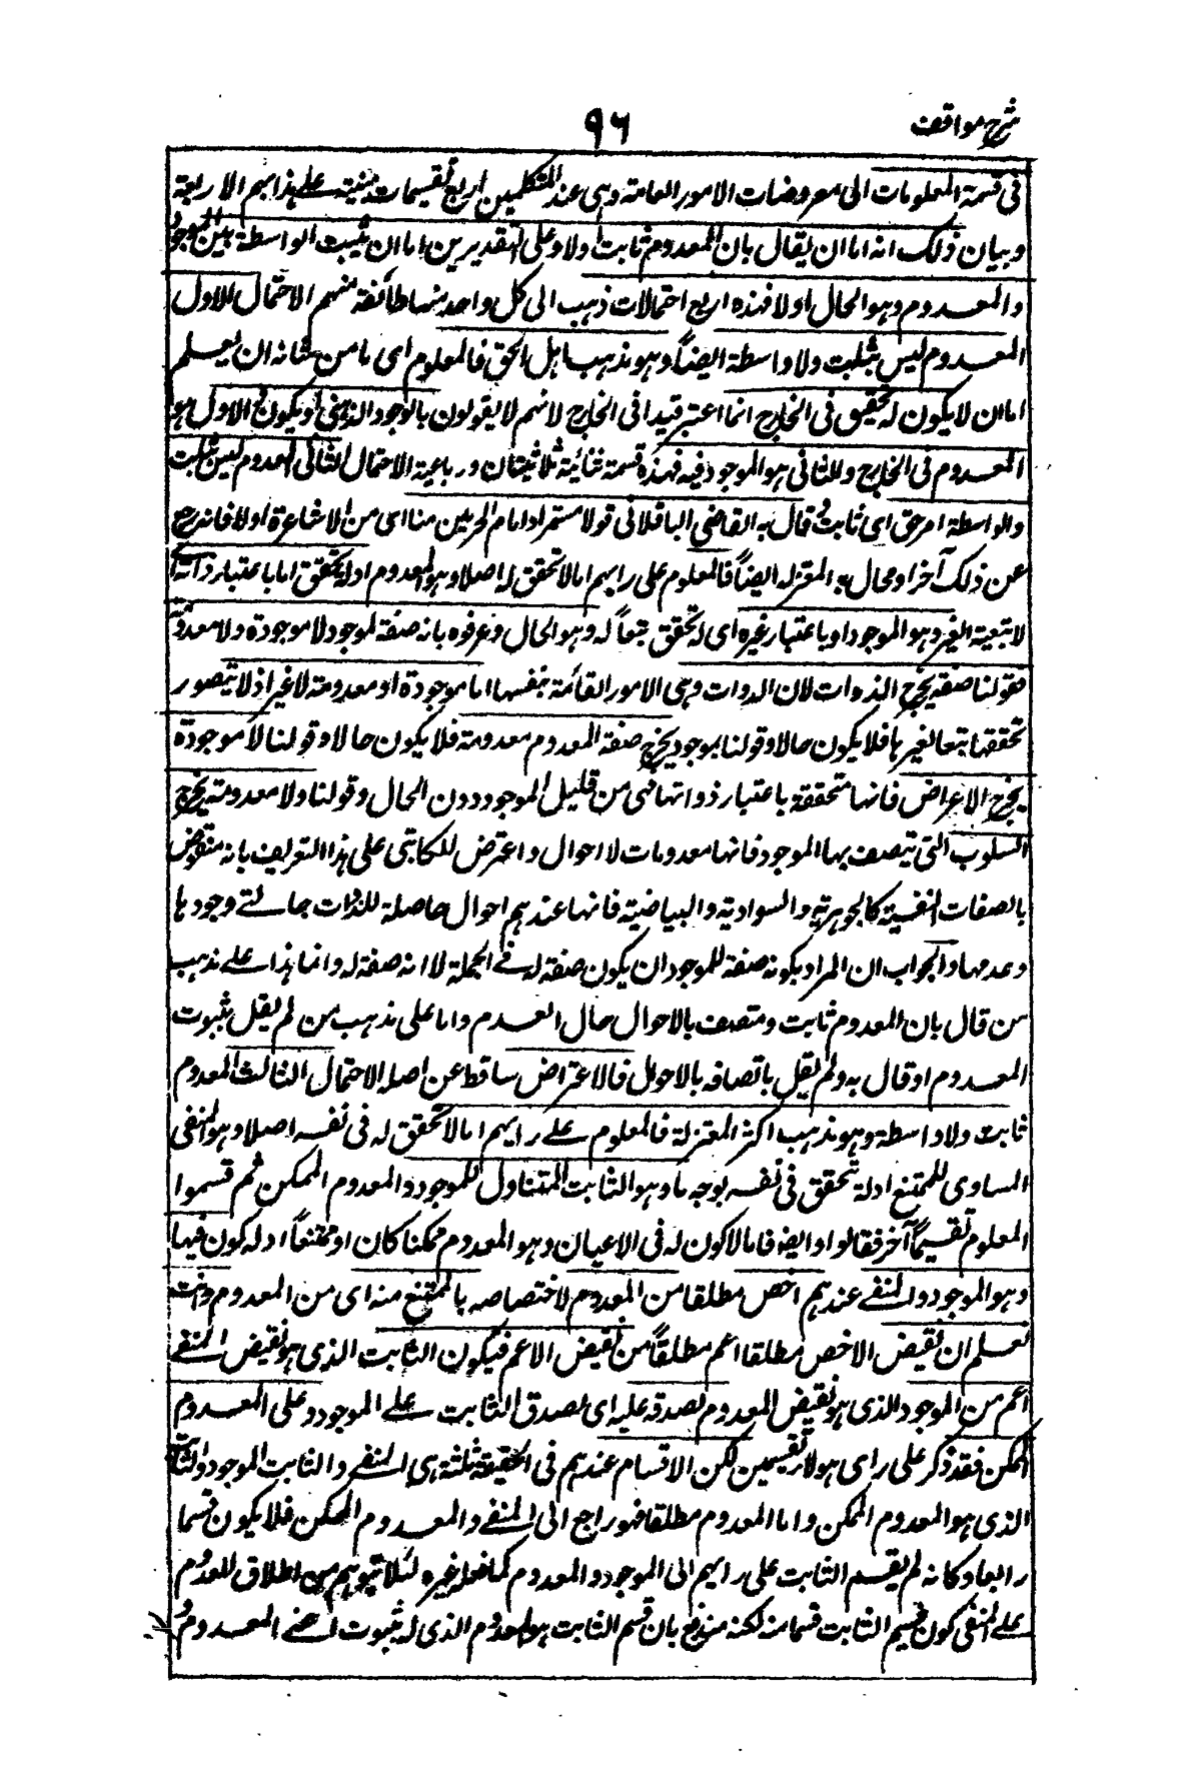 شرح مواقف
٩٦
فى قسمة المعلومات الى معروضات الامور العامة وهى عند المتكلمين اربع تقسيمات مبنية على مذاهبهم الاربعة
وبيان ذلك انه اما ان يقال بان المعدوم ثابت اولا وعلى التقديرين اما ان يثبت الواسطة بين الموجود
والمعدوم وهو الحال اولا فهذه اربع احتمالات ذهب الى كل واحد منها طائفة منهم الاحتمال الاول
المعدوم ليس بثابت ولا واسطة ايضاً وهو مذهب اهل الحق فالمعلوم اى ما من شانه ان يعلم
اما ان لا يكون له تحقق فى الخارج انما اعتبر قيد فى الخارج لانهم لا يقولون بالوجود الذهنى او يكون الاول هو
المعدوم فى الخارج والثانى هو الموجود فيه فهذه قسمة ثنائية ثلاثيتان ورباعية الاحتمال الثانى المعدوم ليس بثابت
والواسطة امر حق اى ثابت وقال به القاضى الباقلانى قولا مستمرا وامام الحرمين منا اى من الاشاعرة اولا فانه رجع
عن ذلك آخرا وقال به المعتزلة ايضاً فالمعلوم على رايهم اما لا تحقق له اصلا وهو المعدوم اوله تحقق اما باعتبار ذاته اى
لا بتبعية الغير وهو الموجود او باعتبار غيره اى له تحقق تبعاً له وهو الحال وعرفوه بانه صفة لموجود لا موجودة ولا معدومة
فقولنا صفة يخرج الذوات لان الذوات وهى الامور القائمة بنفسها اما موجودة او معدومة لا غير اذ لا يتصور
تحققها تبعا لغيرها فلا يكون حالا وقولنا لموجود يخرج صفة المعدوم معدومة فلا يكون حالا وقولنا لا موجودة
يخرج الاعراض فانها متحققة باعتبار ذواتها فهى من قبيل الموجود دون الحال وقولنا ولا معدومة يخرج
السلوب التى يتصف بها الموجود فانها معدومات لا احوال واعترض الكاتبى على هذا التعريف بانه منقوض
بالصفات النفسية كالجوهرية والسوادية والبياضية فانها عندهم احوال حاصلة للذوات حالتى وجودها
وعدمها والجواب ان المراد بكونه صفة للموجود ان يكون صفة له فى الجملة لا انه صفة له دائما هذا على مذهب
من قال بان المعدوم ثابت ومتصف بالاحوال حال العدم واما على مذهب من لم يقل بثبوت
المعدوم او قال به ولم يقل باتصافه بالاحوال فالاعتراض ساقط عن اصله الاحتمال الثالث المعدوم
ثابت ولا واسطة وهو مذهب اكثر المعتزلة فالمعلوم على رايهم اما لا تحقق له فى نفسه اصلا وهو المنفى
المساوى للممتنع اوله تحقق فى نفسه بوجه ما وهو الثابت المتناول للموجود والمعدوم الممكن ثم قسموا
المعلوم تقسيماً آخر فقالوا وايضا فاما لا كون له فى الاعيان وهو المعدوم ممكنا كان او ممتنعاً اوله كون فيها
وهو الموجود والمنفى عندهم اخص مطلقا من المعدوم لاختصاصه بالممتنع منه اى من المعدوم وانت
تعلم ان نقيض الاخص مطلقا اعم مطلقاً من نقيض الاعم فيكون الثابت الذى هو نقيض المنفى
اعم من الموجود الذى هو نقيض المعدوم لصدقه عليه اى لصدق الثابت على الموجود وعلى المعدوم
الممكن فقد ذكر على راى هولاء تقسيمين لكن الاقسام عندهم فى الحقيقة ثلثة هى المنفى والثابت الموجود والثابت
الذى هو المعدوم الممكن واما المعدوم مطلقا فهو راجع الى المنفى والمعدوم الممكن فلا يكون قسما
رابعا وكانه لم يقسم الثابت على رايهم الى الموجود والمعدوم كما فعله غيره لئلا يتوهم من اطلاق المعدوم
على المنفى كون قسيم الثابت قسما منه لكنه مندفع بان قسم الثابت هو المعدوم الذى له ثبوت اعنى المعدوم